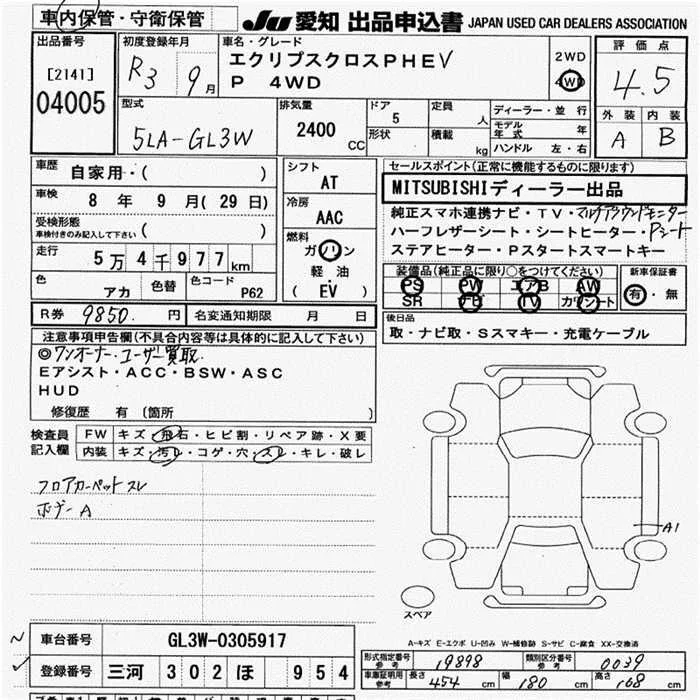 車内保管・守衛保管
JU 愛知 出品申込書 JAPAN USED CAR DEALERS ASSOCIATION
出品番号 [2141] 04005
初度登録年月 R3 9月
車名・グレード エクリプスクロスPHEV
P 4WD
2WD 4WD
評価点 4.5
外装 A 内装 B
型式 5LA-GL3W
排気量 2400 CC
ドア 5 形状
定員 人 積載 kg
ディーラー・並行
モデル年式 年
ハンドル 左・右
車歴 自家用・( )
車検 8年 9月(29日)
受検形態
車検付きのみ記入して下さい ( )
走行 5万4千977km
色 アカ 色替 色コード P62
シフト AT
冷房 AAC
燃料 ガソリン
軽油
(EV)
セールスポイント(正常に機能するものに限ります)
MITSUBISHIディーラー出品
純正スマホ連携ナビ・TV・マルチアラウンドモニター
ハーフレザーシート・シートヒーター・Pシート
ステアヒーター・Pスタートスマートキー
装備品(純正品に限り○をつけてください)
PS PW エアB AW
SR ナビ TV カワシート
新車保証書 有・無
R券 9850.円 名変通知期限 月 日
後日品
取・ナビ取・Sスマキー・充電ケーブル
注意事項申告欄(不具合内容等は具体的に記入して下さい)
◎ワンオーナー・ユーザー買取.
Eアシスト・ACC・BSW・ASC
HUD
修復歴 有 〔箇所 〕
検査員記入欄
FW キズ・飛石・ヒビ割・リペア跡・X要
内装 キズ・汚レ・コゲ・穴・スレ・キレ・破レ
フロアカーペットスレ
ボデーA
A1
スペア
A-キズ E-エクボ U-凹み W-補修跡 S-サビ C-腐食 XX-交換済
車台番号 GL3W-0305917
登録番号 三河 302 ほ 954
形式指定番号 参考 19898 類別区分番号 参考 0039
車庫証明用 参考 長さ 454 cm 幅 180 cm 高さ 168 cm